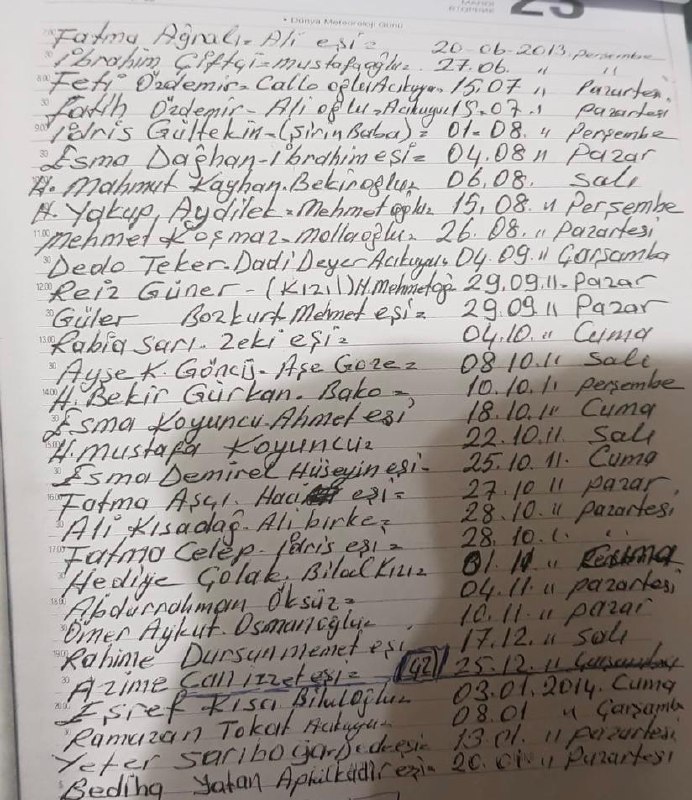 • Dünya Meteoroloji Günü
23
Fatma Ağralı= Ali eşi= 20-06-2013 perşembe
İbrahim Çiftçi=mustafaoğlu= 27.06. " "
Feti Özdemir= Callo oğlu Acıkuyu= 15.07 " Pazartesi
Fatih Özdemir- Ali oğlu=Acıkuyu 15.07." pazartesi
İdris Gültekin-(ŞirinBaba)= 01-08. " Perşembe
Esma Dağhan-İbrahim eşi= 04.08 " Pazar
H. Mahmut Kayhan.Bekiroğlu= 06.08. Salı
H. Yakup, Aydilek=Mehmet oğlu= 15.08. " Perşembe
Mehmet Koşmaz=mollaoğlu= 26.08. " Pazartesi
Dedo Teker=Dadi Acıkuyu= 04.09." Çarşamba
Reiz Güner-(Kızıl)H.Mehmetoğ= 29.09.11-Pazar
Güler Bozkurt=Mehmet eşi= 29.09 11 Pazar
Rabia Sarı. Zeki eşi= 04.10. " Cuma
Ayşe K. Göncü=Aşe Goze= 08 10." Salı
H. Bekir Gürkan. Bako= 10.10.11 perşembe
Esma Koyuncu.Ahmet eşi 18.10.11 Cuma
H. Mustafa Koyuncu= 22.10.11. Salı
Esma Demirel Hüseyin eşi- 25.10.11. Cuma
Fatma Aşçı. Hacı eşi= 27.10 11 pazar.
Ali Kısadağ-Ali birke= 28.10.11 pazartesi
Fatma Celep-İdris eşi= 28.10. " "
Hediye Çolak. Bilal Kızı= 01.11 " Cuma
Abdurrahman Öksüz= 04.11." pazartesi
Ömer Aykut. Osmanoğlu= 10.11." pazar
Rahime Dursun memet eşi 17.12. " salı
Azime Can izzet eşi= (42) 25.12. " Çarşamba
Eşref Kısa Biluloğlu= 03.01.2014. Cuma
Ramazan Tokat Acıkuyu= 08.01 " Çarşamba
Yeter Sarıboğa eşi= 13.01. " pazartesi
Bediha Yatan Aphilkadir eşi= 20.01." Pazartesi